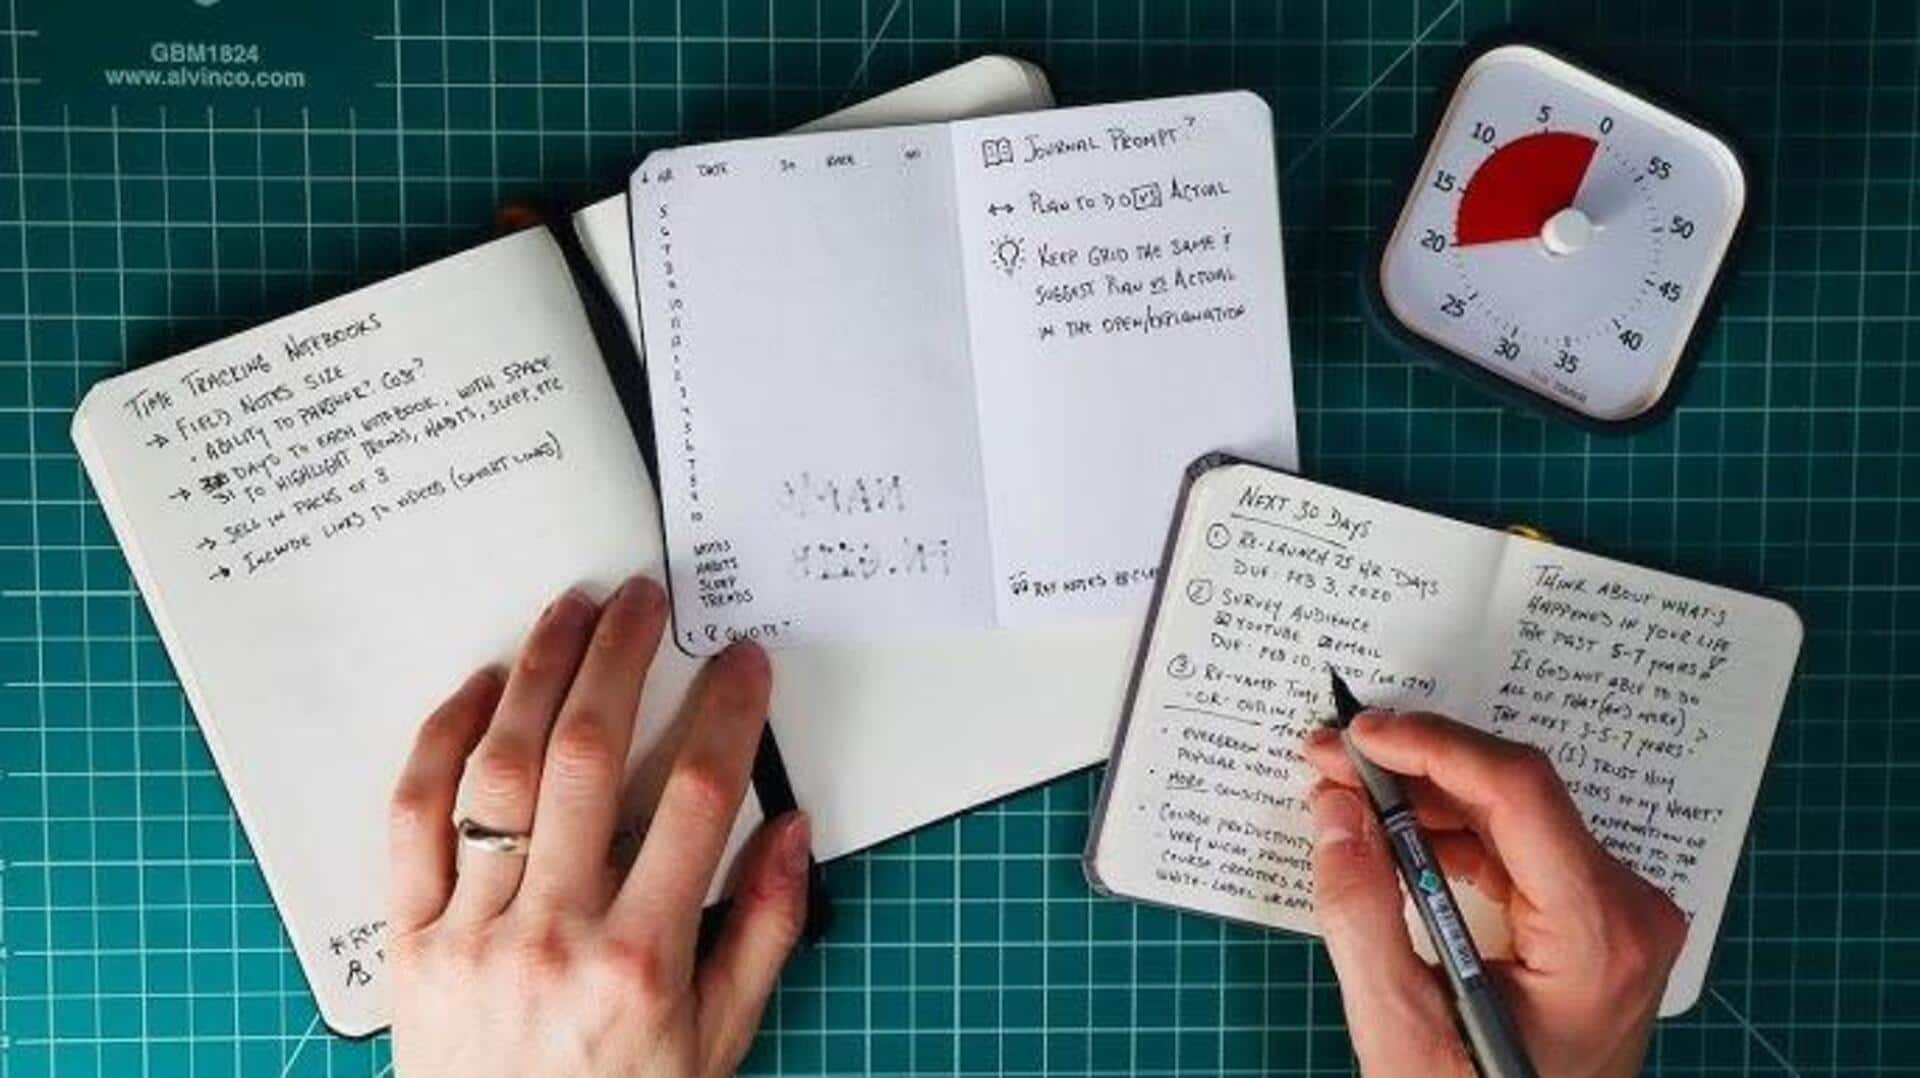 GBM1824
www.alvinco.com
TIME TRACKING NOTEBOOKS
→ FIELD NOTES SIZE
• ABILITY TO PARTNER? COST?
→ DAYS TO EACH NOTEBOOK, WITH SPACE
31 TO HIGHLIGHT TRENDS, HABITS, SLEEP, ETC
→ SELL IN PACKS OF 3
→ INCLUDE LINKS TO VIDEOS (SMART LINKS)
DATE
5
6
7
8
9
10
11
12
1
2
3
4
5
6
7
8
9
10
NOTES
HABITS
SLEEP
TRENDS
QUOTE?
JOURNAL PROMPT?
↔ PLAN TO DO VS ACTUAL
KEEP GRID THE SAME &
SUGGEST PLAN VS ACTUAL
IN THE OPEN/EXPLANATION
NOTES
0
5
10
15
20
25
30
35
40
45
50
55
NEXT 30 DAYS
1 RE-LAUNCH 25 HR DAYS
DUE: FEB 3, 2020
2 SURVEY AUDIENCE
YOUTUBE EMAIL
DUE: FEB 10, 2020
3 RE-VAMP TIME
-OR- OUTLINE
• EVERGREEN
POPULAR VIDEOS
• MORE CONSISTENT
• COURSE PRODUCTIVITY
- VERY NICHE, PROMOTE
COURSE CREATORS AS
WHITE-LABEL OR
THINK ABOUT WHAT'S
HAPPENED IN YOUR LIFE
THE PAST 5-7 YEARS
IS GOD NOT ABLE TO DO
ALL OF THAT (AND MORE)?
THE NEXT 3-5-7 YEARS?
(I) TRUST HIM
DESIRES OF MY HEART?
TO THE